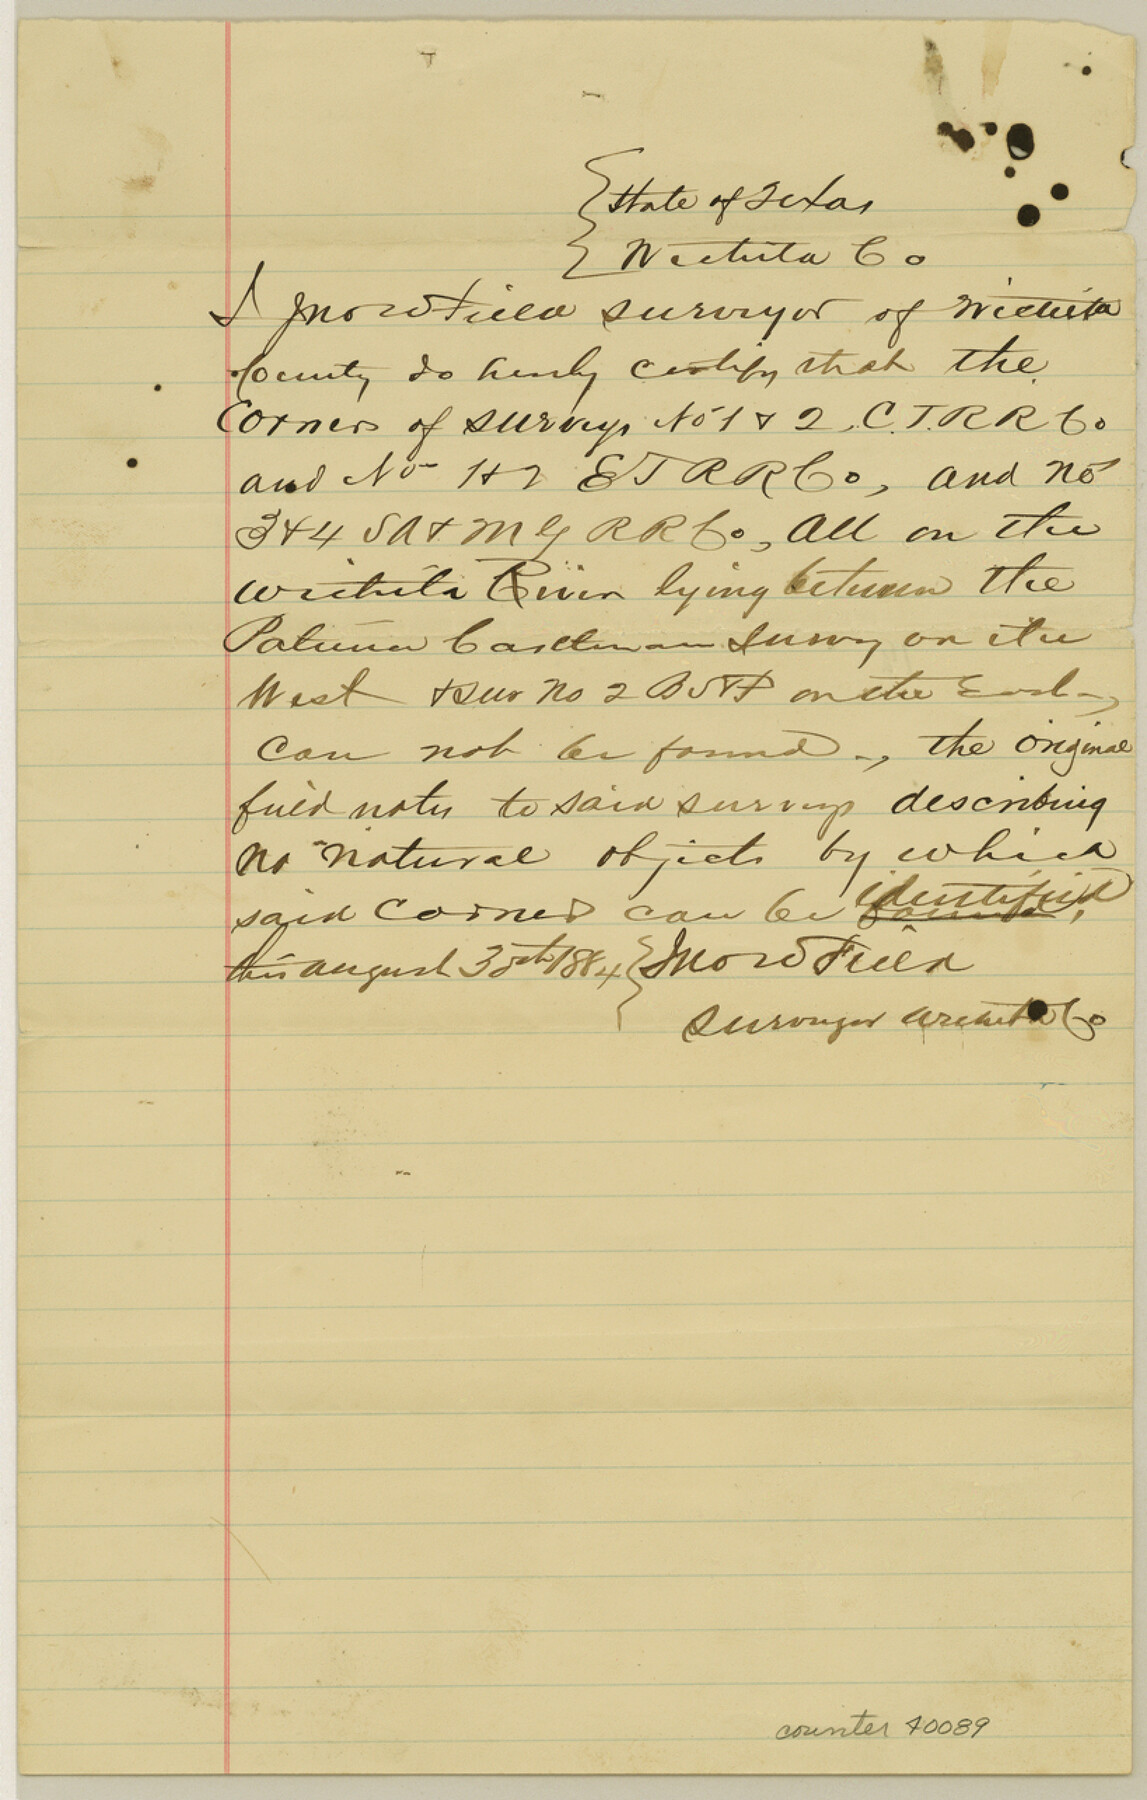 State of Texas
Wichita Co
I Jno W Field surveyor of Wichita
County do hereby certify that the
Corners of surveys No 1 & 2 C.T.R R Co
and No 1 & 2 E T R R Co, and No
3 & 4 S A & M G R R Co, All on the
Wichita River lying between the
Castleman Survey on the
West & sur No 2 B S & F on the East,
can not be found, the original
field notes to said surveys describing
no natural objects by which
said corners can be found identified,
this august 30th 1884 Jno W Field
surveyor Wichita Co
counter 40089